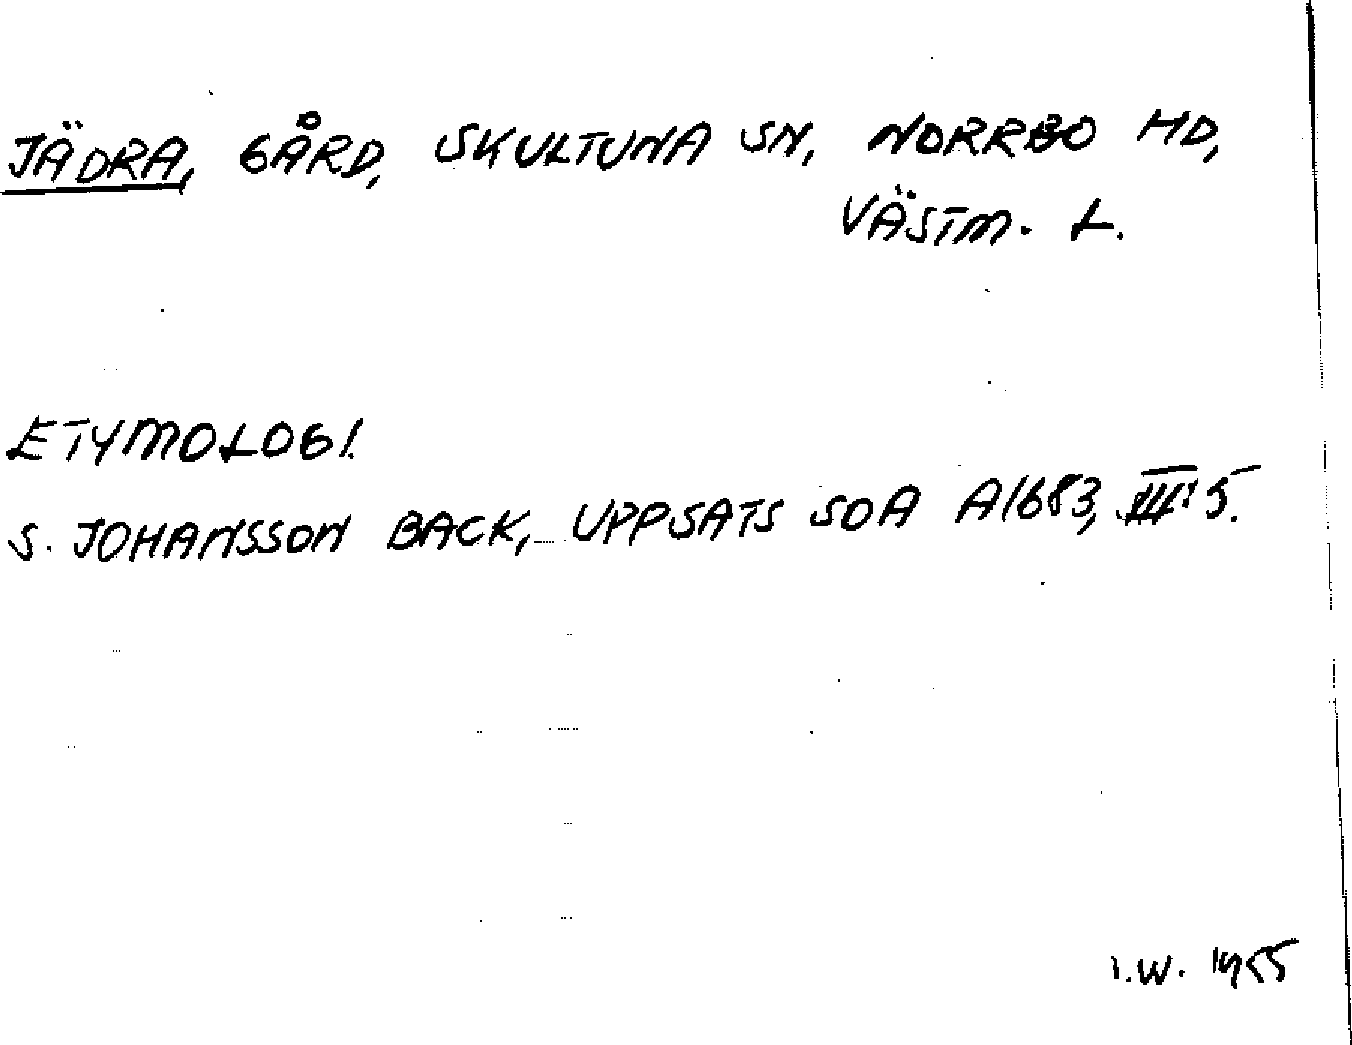 JÄDRA, GÅRD, SKULTUNA SN, NORRBO HD,
VÄSTM. L.
ETYMOLOGI.
S. JOHANSSON BACK, UPPSATS SOA A1683, III:5.
I.W. 1955